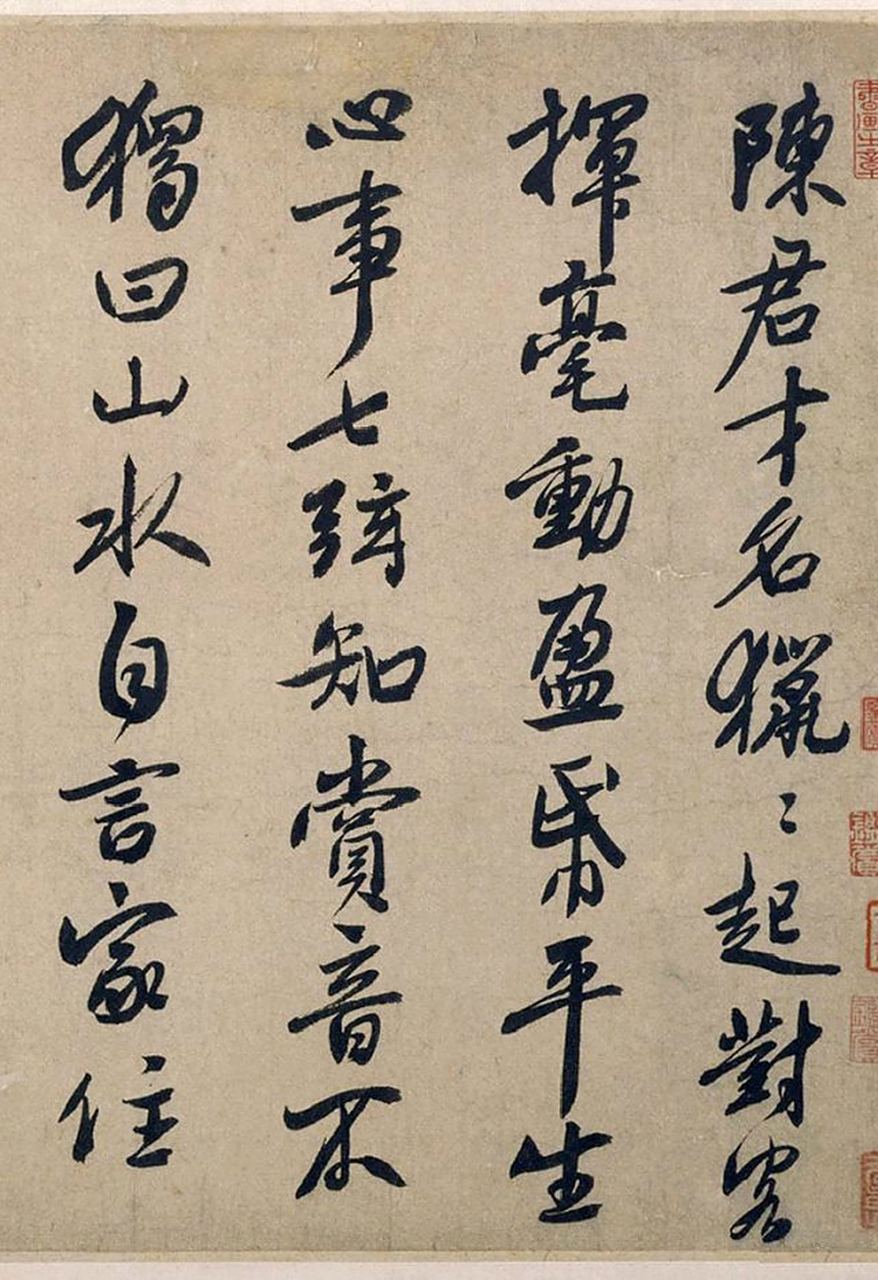 陳君才名獵〻起對客
揮毫動盈帋平生
心事七弦知賞音不
獨曰山水自言家住